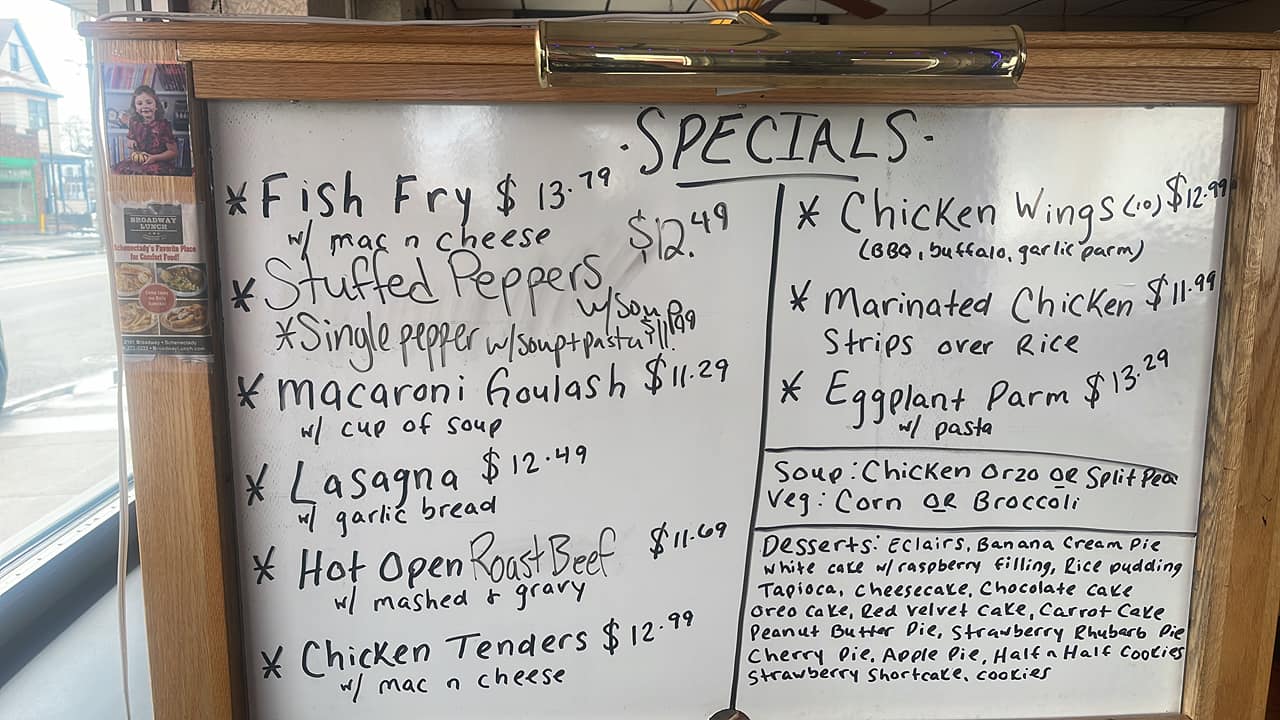 ·SPECIALS·
* Fish Fry $13.79
w/ mac n cheese
* Stuffed Peppers $12.49
w/ soup
* Single pepper w/soup+pasta $11.99
* Macaroni Goulash $11.29
w/ cup of soup
* Lasagna $12.49
w/ garlic bread
* Hot Open Roast Beef $11.69
w/ mashed + gravy
* Chicken Tenders $12.99
w/ mac n cheese
* Chicken Wings (10) $12.99
(BBQ, buffalo, garlic parm)
* Marinated Chicken $11.99
Strips over Rice
* Eggplant Parm $13.29
w/ pasta
Soup: Chicken Orzo OR Split Pea
Veg: Corn OR Broccoli
Desserts: Eclairs, Banana Cream Pie
White cake w/ raspberry filling, Rice pudding
Tapioca, Cheesecake, Chocolate cake
Oreo Cake, Red Velvet Cake, Carrot Cake
Peanut Butter Pie, Strawberry Rhubarb Pie
Cherry Pie, Apple Pie, Half n Half Cookies
Strawberry Shortcake, cookies
BROADWAY
LUNCH
Schenectady's Favorite Place
for Comfort Food!